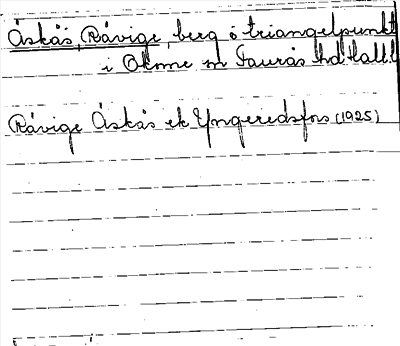 Åskås, Rävige, berg o triangelpunkt
i Okome sn Faurås hd Hall.l.
Rävige Åskås ek Yngeredsfors (1925)